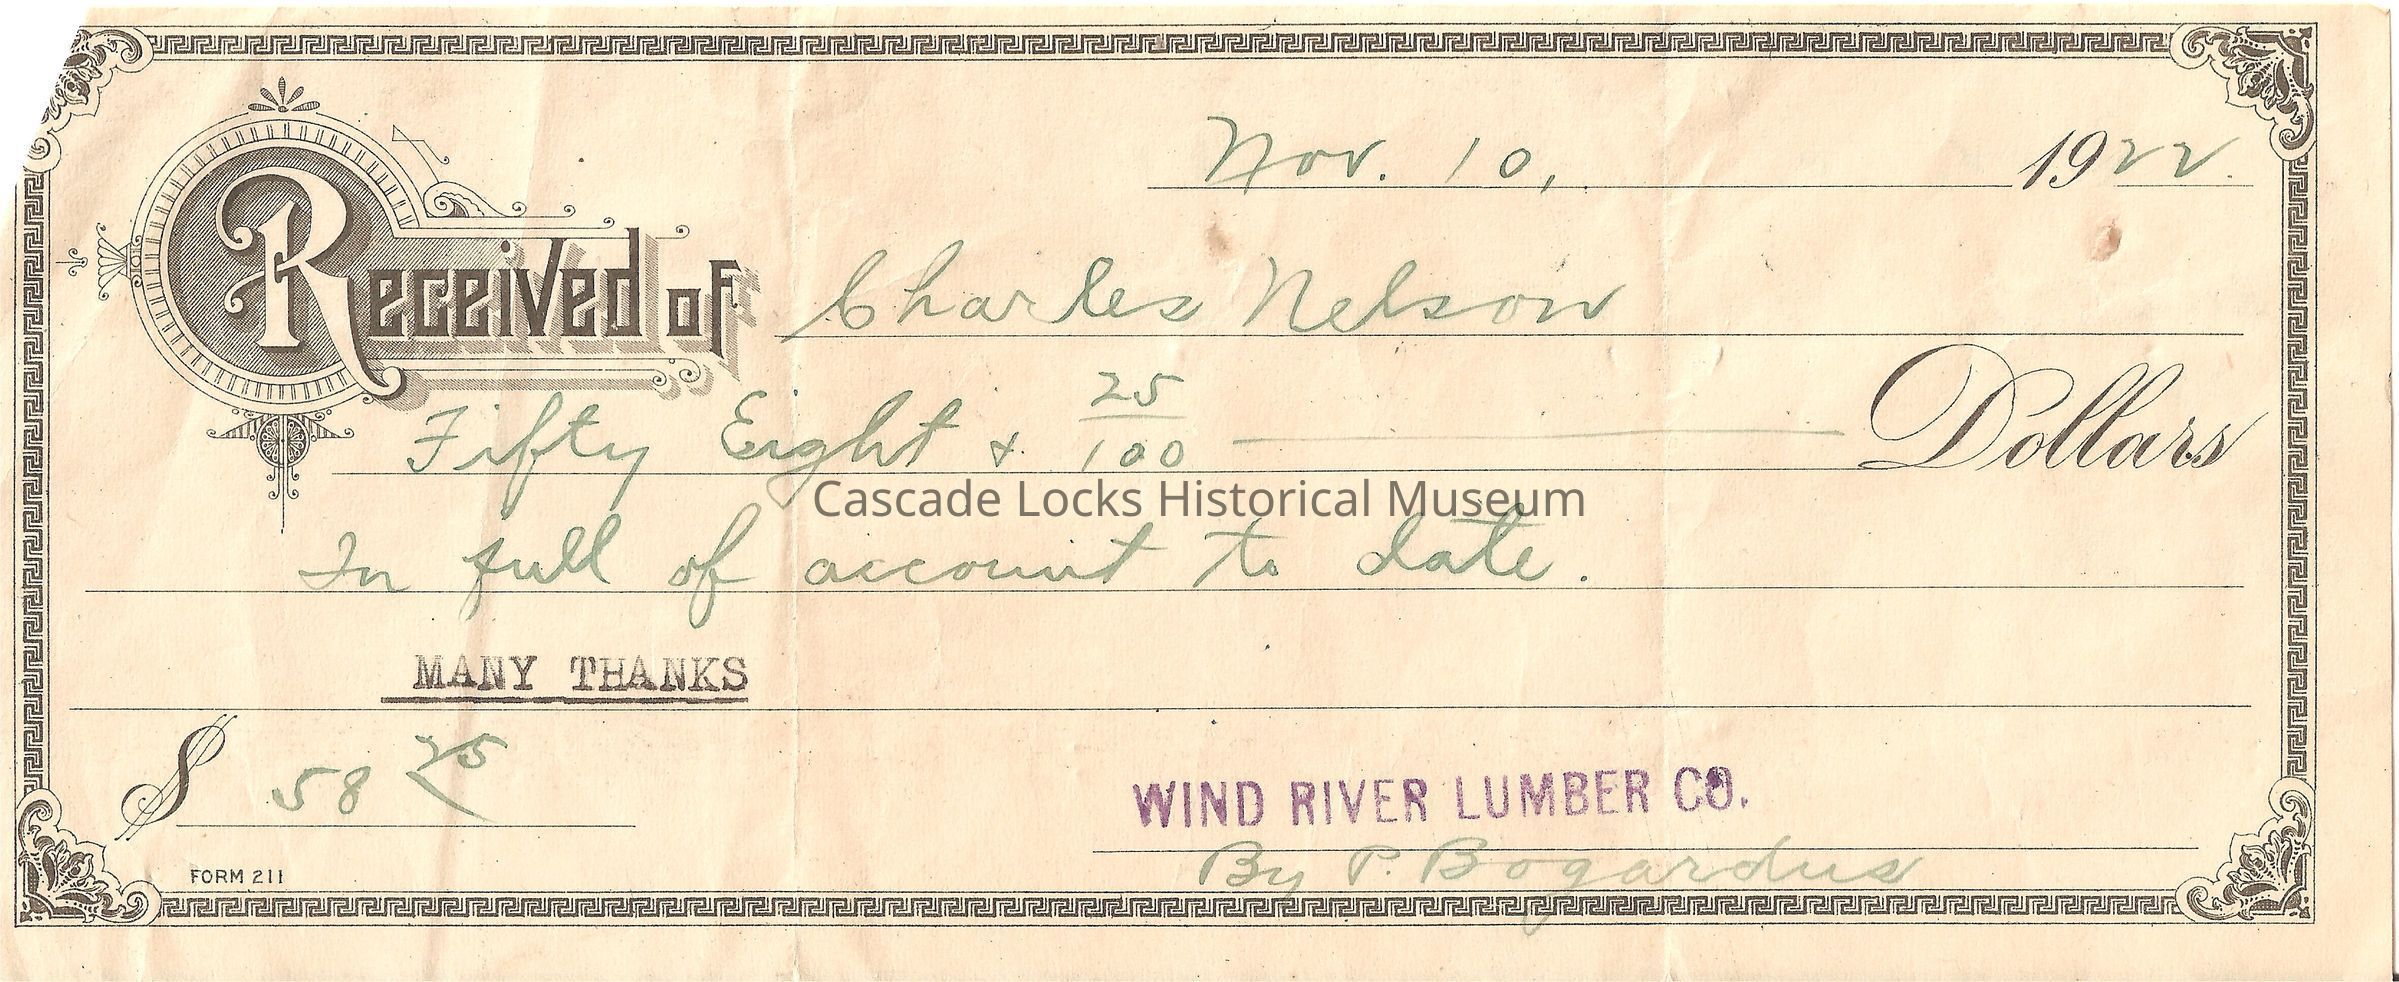 Nov. 10, 1922
Received of Charles Nelson
Fifty Eight & 25/100 Dollars
Cascade Locks Historical Museum
In full of account to date.
MANY THANKS
$ 58 25
WIND RIVER LUMBER CO.
By P. Bogardus
FORM 211